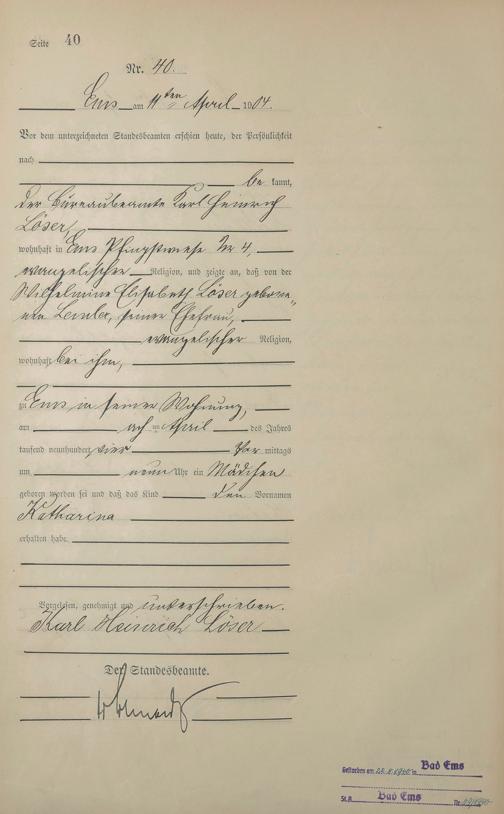 Seite 40
Nr. 40.
Ems am 11ten April 1904.
Vor dem unterzeichneten Standesbeamten erschien heute, der Persönlichkeit
nach
be kannt,
der Büreaubeamte Karl Heinrich
Löser,
wohnhaft in Ems Pfingstwiese Nr 4,
evangelischer Religion, und zeigte an, daß von der
Wilhelmine Elisabeth Löser gebore-
nen seiner Ehefrau,
evangelischer Religion,
wohnhaft bei ihm,
zu Ems in seiner Wohnung,
am ten April des Jahres
tausend neunhundert vier Vor mittags
um neun Uhr ein Mädchen
geboren worden sei und daß das Kind den Vornamen
Katharina
erhalten habe.
Vorgelesen, genehmigt und unterschrieben.
Karl Heinrich Löser
Der Standesbeamte.
Gestorben am in Bad Ems
St.A. Bad Ems Nr.